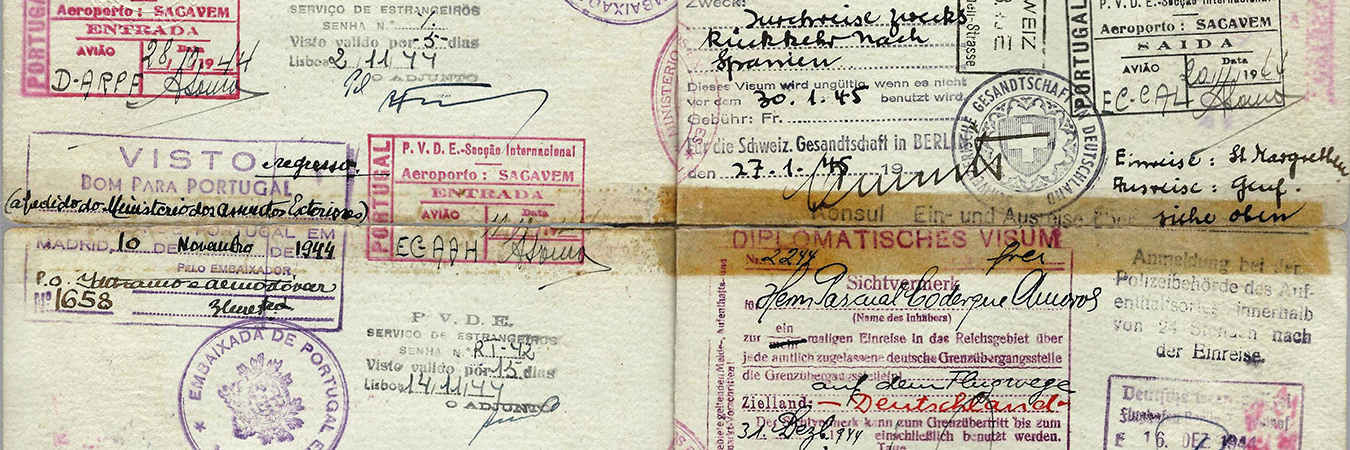 PORTUGAL
Aeroporto : SAGAVEM
ENTRADA
AVIÃO
Data
28, 1944
D-ARPF
SERVIÇO DE ESTRANGEIROS
SENHA N.º
Visto valido por 5 dias
Lisboa 2/11/44
O ADJUNTO
VISTO regresso.
BOM PARA PORTUGAL
(a pedido do Ministerio dos Asuntos Exteriores)
PORTUGAL EM
MADRID, 10 DE Novembro DE 1944
PELO EMBAIXADOR,
P.O.
Nº 1658
EMBAIXADA DE PORTUGAL E
PORTUGAL
P. V. D. E.-Secção Internacional
Aeroporto : SAGAVEM
ENTRADA
AVIÃO
Data
EC-AAH
P V. D. E.
SERVIÇO DE ESTRANGEIROS
SENHA N.º R.I-42
Visto valido por 15 dias
Lisboa 14/11/44
O ADJUNTO
Zweck:
Durchreise zwecks
Rückkehr nach
Spanien
Dieses Visum wird ungültig, wenn es nicht
vor dem 30. 1. 45 benutzt wird.
Gebühr: Fr.
Für die Schweiz. Gesandtschaft in BERLIN
den 27. 1. 45 19
Konsul
MINISTERIO
GESANDTSCHAFT
DEUTSCHLAND
WEIZ
Strasse
PORTUGAL
P. V. D. E.-Secção Internacional
Aeroporto : SAGAVEM
SAIDA
AVIÃO
Data
1944
EC-CAL
Einreise : St Margrethen
Ausreise : Genf.
Ein- und Ausreise über siehe oben
DIPLOMATISCHES VISUM
Nr. 2244 frei
Sichtvermerk
Herrn Pascual Coderque Amoros
(Name des Inhabers)
ein
zur maligen Einreise in das Reichsgebiet über
jede amtlich zugelassene deutsche Grenzübergangsstelle
die Grenzübergangsstelle(n)
auf dem Flugwege
Zielland: - Deutschland -
Der Sichtvermerk kann zum Grenzübertritt bis zum
31. Dez. 1944 einschließlich benutzt werden.
Anmeldung bei der
Polizeibehörde des Auf-
enthaltsortes innerhalb
von 24 Stunden nach
der Einreise.
Deutsche
Flughafen
E 16. DEZ. 1944